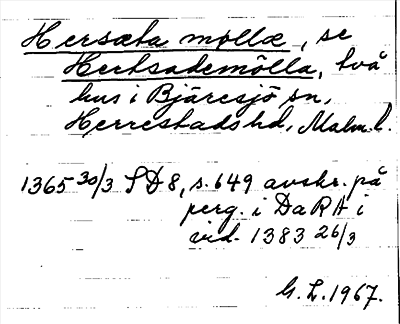 Hersæta mollæ, se
Hertsademölla, två
hus i Bjäresjö sn,
Herrestads hd, Malm. l.
1365 30/3 SD 8, s. 649 avskr. på
perg. i DaRA i
vid. 1383 26/3
G. L. 1967.